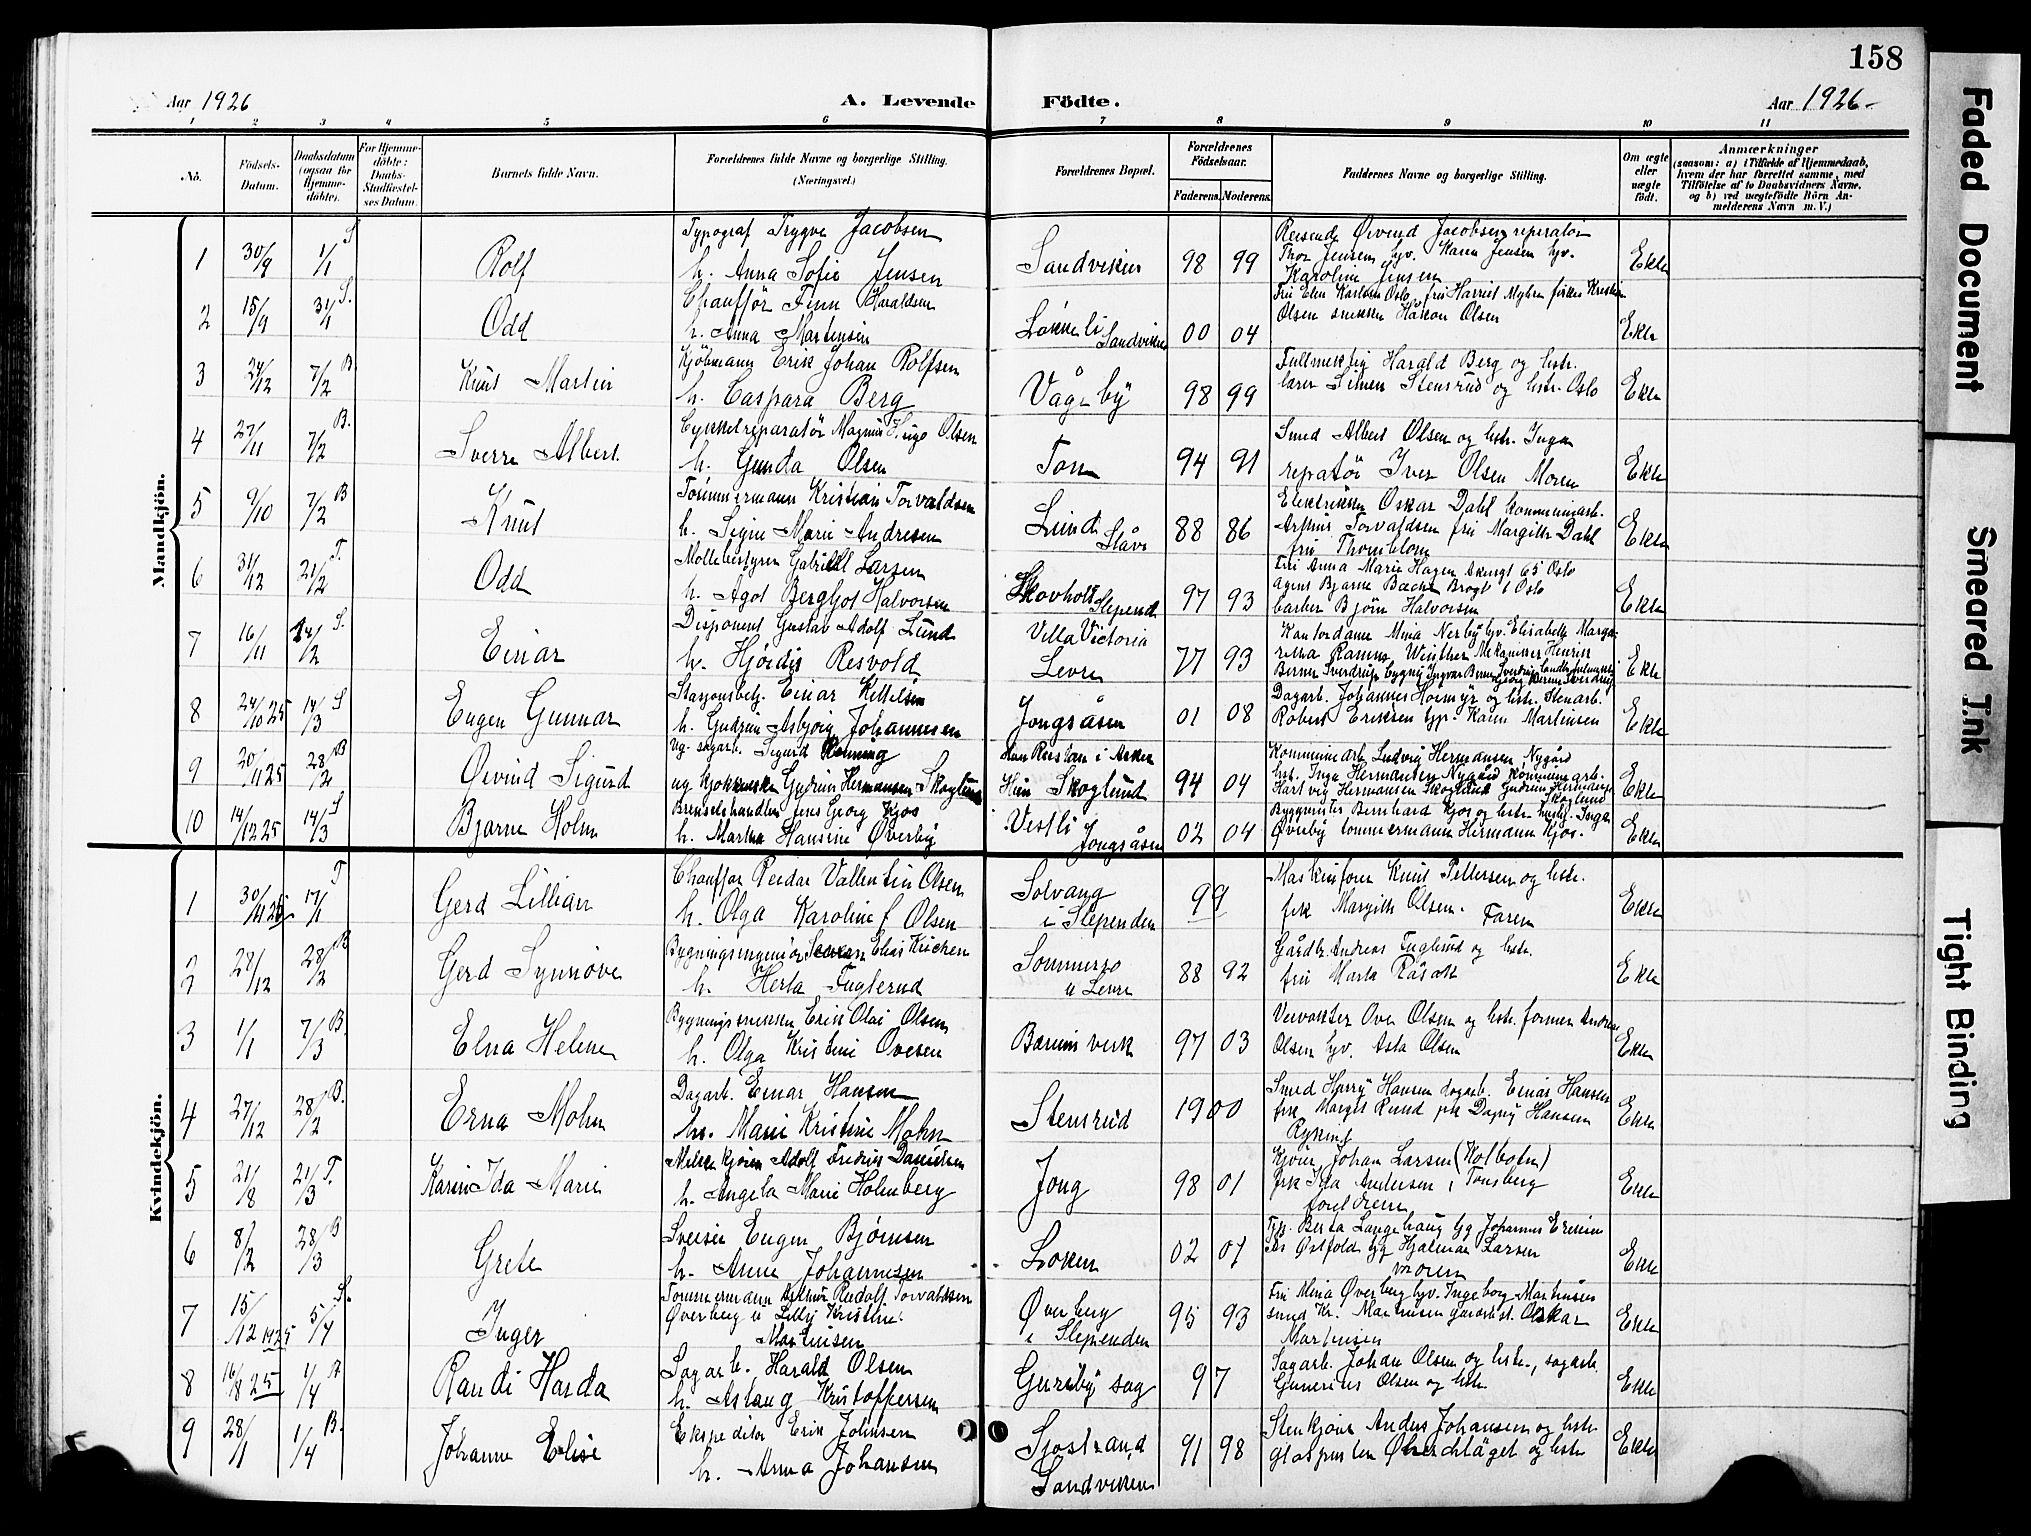 158
Aar 1926
A. Levende
Födte.
Aar 1926
1 2 3 4 5 6 7 8 9 10 11
No.
Födsels-Datum.
Daabsdatum (ogsaa for Hjemme-döbte).
For Hjemme-döbte: Daabs-Stadfæstel-ses Datum.
Barnets fulde Navn.
Forældrenes fulde Navne og borgerlige Stilling. (Næringsvei.)
Forældrenes Bopæl.
Forældrenes Födselsaar.
Faderens. Moderens.
Faddernes Navne og borgerlige Stilling.
Om ægte eller uægte födt.
Anmærkninger
(saasom: a) i Tilfælde af Hjemmedaab, hvem der har forrettet samme, med Tilföielse af to Daabsvidners Navne, og b) ved uægtefödte Börn An-melderens Navn m. V.)
Mandkjön.
1 30/9 1/1 S Rolf Typograf Trygve Jacobsen h. Anna Sofie Jensen Sandviken 98 99 Reisende Øivind Jacobsen reperatør Thor Jensen hv. Karen Jensen hv. Karoline Jensen Ekte
2 15/9 31/1 S. Odd Chauffør Finn Haraldsen h. Anna Martensen Løkkeli Sandviken 00 04 Olsen snekker Håkon Olsen Ekte
3 24/12 7/2 B Knut Martin Kjøbmann Erik Johan Rolfsen h. Caspara Berg Vågeby 98 99 Fullmektig Harald Berg og hstr. lærer Simen Stensrud og hstr. Oslo Ekte
4 27/11 7/2 B. Sverre Albert Cykkelreparatør Magnus Hugo Olsen h. Gunda Olsen 94 91 Smed Albert Olsen og hstr. Inga repatør Iver Olsen Moren Ekte
5 9/10 7/2 B Knut Tømmermann Kristian Torvaldsen h. Signe Marie Andresen Lund 88 86 Elektriker Oskar Dahl kommunearb. Arthur Torvaldsen fru Margith Dahl fru Thornblom Ekte
6 31/12 21/2 T. Odd Møllebestyrer Gabriel Larsen h. Agot Bergljot Halvorsen Skovholt Slepend 97 93 Fru Anna Marie Hagen Akersgt 65 Oslo agent Bjarne Bache Brogt 1 Oslo barber Bjørn Halvorsen Ekte
7 16/11 14/2 S. Einar Disponent Gustav Adolf Lund h. Hjørdis Resvold Villa Victoria Levre 77 93 Kontordame Mina Nerby hv. Elisabeth Ekte
8 24/10 25 14/3 S Eugen Gunnar Stasjonsbetj. Einar Kittelsen h. Gudrun Asbjørg Johannesen Jongsåsen 01 08 Dagarb. Johannes Hoemyr og hstr. Stenarb. Robert Eriksen typ. Karen Martensen Ekte
9 20/11 25 28/2 B Øivind Sigurd Ug. sagarb. Sigurd Rønning ug kjøkkenske Gudrun Hermansen Skoglund Han Reistan i Asker Hun Skoglund 94 04 Kommunearb. Ludvig Hermansen Nygård hst. Inga Hermansen Nygård kommunearb. Hartvig Hermansen Skoglund Gudrun Hermansen Skoglund Ekte
10 14/12 25 14/3 S Bjarne Holm Brenselshandler Jens Georg Kjos h. Martha Hansine Øverby Vestli Jongsåsen 02 04 Byggmester Bernhard Kjos og hstr. hushj. Inga Øverby tømmermann Hermann Kjos. Ekte
Kvindekjön.
1 30/11 25 17/1 T Gerd Lillian Chauffør Reidar Vallentin Olsen h. Olga Karoline f Olsen Solvang i Slependen 99 Maskinfører Knut Pettersen og hstr. frk Margith Olsen. Faren Ekte
2 28/12 28/2 B Gerd Synnøve Bygningsingeniør Elias Kirchen h. Herta Fuglerud Sommerro u Levre 88 92 Gårdbr. Andreas Fuglerud og hstr. fru Marta Råsok Ekte
3 1/1 7/3 B. Elna Helene Bygningssnekker Erik Olai Olsen h. Olga Kristine Ovesen Bærums verk 97 03 Veivokter Ove Olsen og hstr. former Andreas Olsen hv. Asta Olsen Ekte
4 27/12 28/2 B. Erna Mohn Dagarb. Einar Hansen h. Marie Kristine Mohn Stensrud 1900 Smed Harry Hansen dagarb. Einar Hansen frk Margit Ruud frk Dagny Hansen Rykinn Ekte
5 21/8 21/3 T. Karin Ida Marie Melkekjører Adolf Fredrik Danielsen h. Angela Marie Holmberg Jong 98 01 Kjører Johan Larsen (Kolbotn) frk Ida Andersen i Tønsberg foreldrene Ekte
6 8/2 28/3 B Grete Sveiser Eugen Bjørnsen h. Anna Johannesen Løken 02 07 Tjp. Berta Langehaug Gg Johannes Eriksen Østfold Gg Hjalmar Larsen moren Ekte
7 15/12 1925 5/4 S. Inger Tømmermann Arthur Rudolf Torvaldsen Øverberg u Lilly Kristine Martinsen Øverberg i Slependen 95 93 Fru Mina Øverberg hv. Ingeborg Martinsen smed Kr. Martinsen gårdbest. Oskar Martinsen Ekte
8 16/8 25 1/4 B Randi Harda Sagarb. Harald Olsen h. Aslaug Kristoffersen Gureby sag 97 Sagarb. Johan Olsen og hstr., sagarb. Gunerius Olsen og hstr. Ekte
9 28/1 1/4 B. Johanne Elise Ekspeditør Erik Johnsen h. Anna Johansen Sjøstrand Sandviken 91 98 Stenkjører Anders Johansen og hstr. og hstr. Ekte
Faded Document
Smeared Ink
Tight Binding